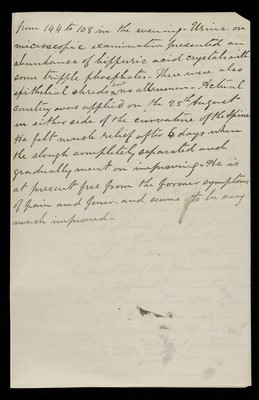 from 144 to 108 in the evening. Urine on
microscopic examination presented an
abundance of hippuric acid crystals with
some tripple phosphates. There were also
epithelial shreds but no albumen. Actual
cautery was applied on the 25th August
on either side of the curvature of the spine
He felt much relief after 6 days when
the slough completely separated and
gradually went on improving. He is
at present free from the former symptoms
of pain and fever. and seems to be very
much improved.